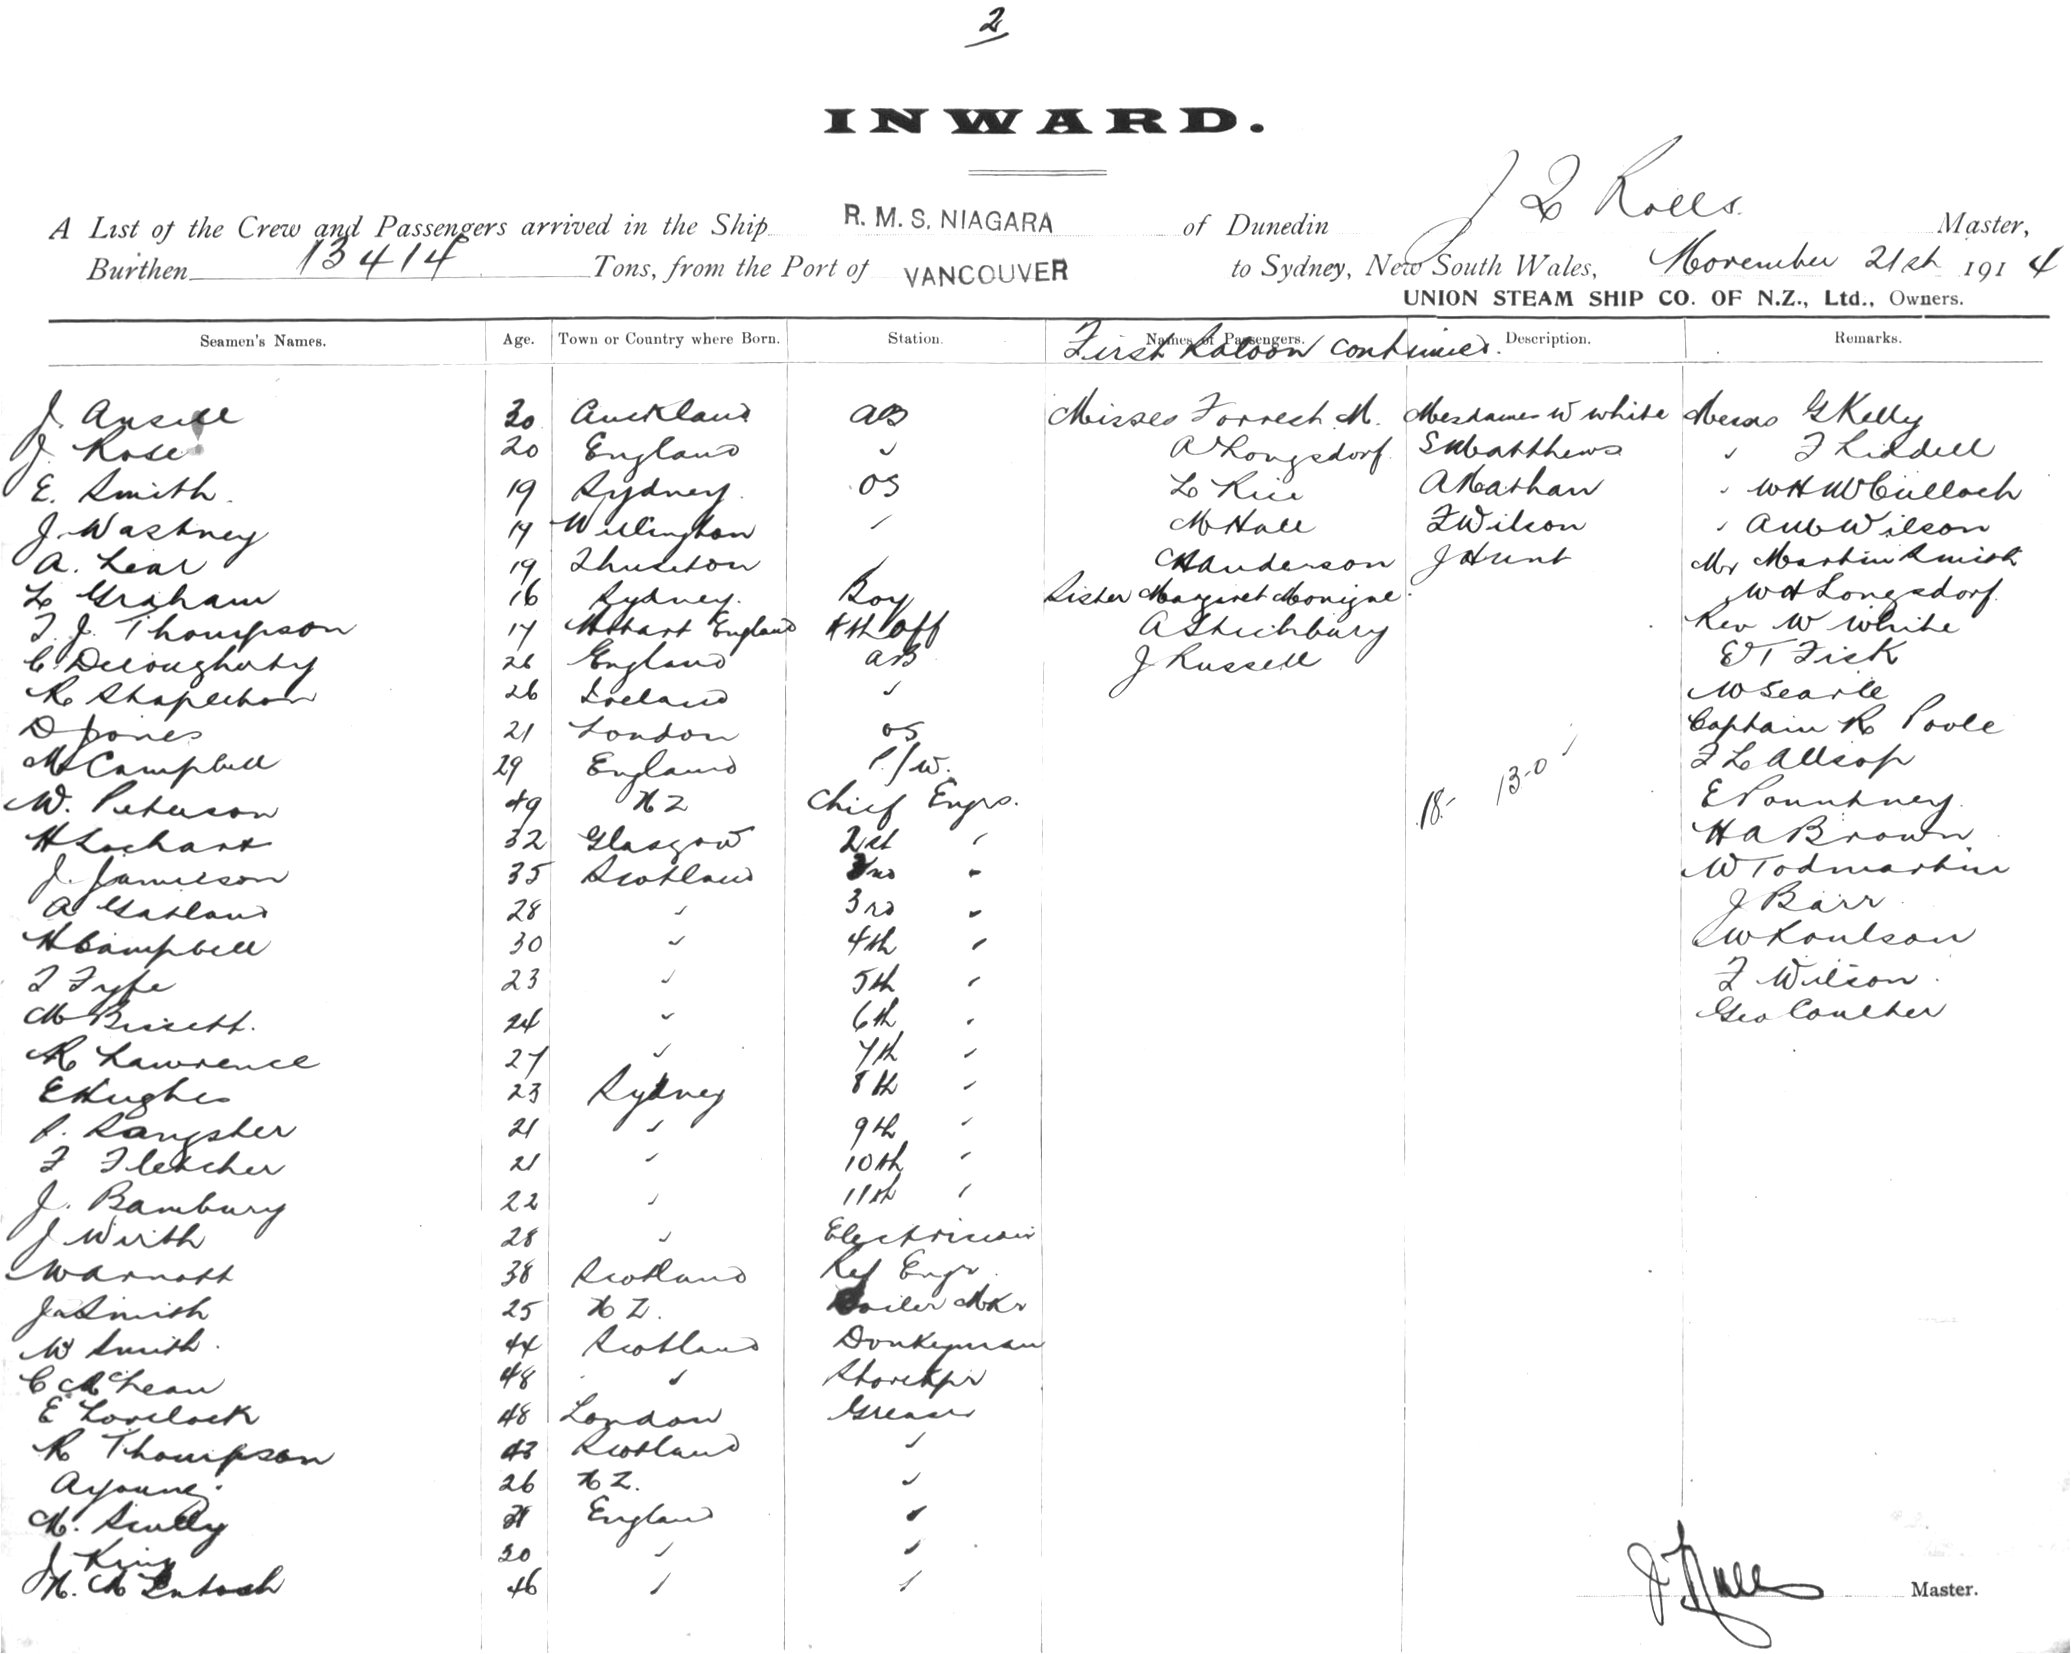 2
INWARD.
A List of the Crew and Passengers arrived in the Ship R. M. S. NIAGARA of Dunedin J Rolls. Master,
Burthen 13414 Tons, from the Port of VANCOUVER to Sydney, New South Wales, November 21st 1914
UNION STEAM SHIP CO. OF N.Z., Ltd., Owners.
Seamen's Names. Age. Town or Country where Born. Station. Names of Passengers. Description. Remarks.
First Saloon continued.
J. Ansell 30 Auckland AB Misses Forrest M. Mesdames W White Messrs G Kelly
J. Rose 20 England " A Longsdorf S Matthews " F Liddell
E. Smith. 19 Sydney. OS L Rice A Nathan " W H McCulloch
J. Wastney 19 Wellington " M Hall F Wilson " A Wilson
A. Lear 19 " C Anderson J Hunt Mr Martin Smith
L Graham 16 Sydney. Boy Sister Margaret W H Longsdorf.
T. J. Thompson 17 England 4th Off A Stichbury Rev W White
C. 26 England AB J Russell E T Fisk
R Stapleton 26 Ireland " W Searle
D Jones 21 London OS Captain R Poole
M Campbell 29 England P/W. F L Allsop
W. Peterson 49 N Z Chief Engr. 18- 13-0 E Pountney.
H Lochart 32 Glasgow 2st " H A Brown
J. Jamieson 35 Scotland 2nd " W Todmartin
A Garland 28 " 3rd " J Barr
H Campbell 30 " 4th " W Koulson
T Fyfe 23 " 5th " F Wilson.
M Bissett. 24 " 6th " Geo Coulter
R Lawrence 27 " 7th "
E Hughes 23 Sydney 8th "
P. Sangster 21 " 9th "
F Fletcher 21 " 10th "
J. Bambury 22 " 11th "
J Wirth 28 " Electrician
W Arnott 38 Scotland Ref Engr.
Jas Smith 25 N Z. Boiler Mkr
W Smith. 44 Scotland Donkeyman
C McLean 48 " Storekpr
E Lovelock 48 London Greaser
R Thompson 43 Scotland "
A Young. 26 N Z. "
M. Scully England "
J. King 30 " "
N. McIntosh 46 " "
J Rolls Master.